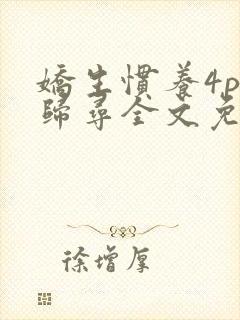 嬌生慣養4p
歸尋全文免
徐增厚